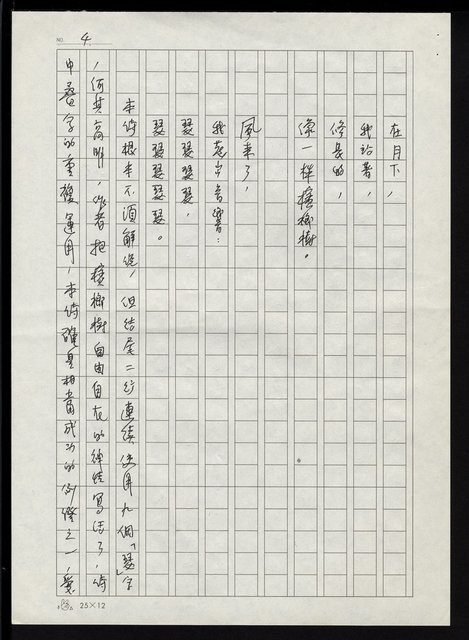 NO. 4.
在月下，
我站著，
修長的，
像一株檳榔樹。
風來了，
我發出音響：
瑟瑟瑟瑟，
瑟瑟瑟瑟瑟。
本詩根本不須解說，但結尾二行連續使用九個「瑟」字
，何其高明，作者把檳榔樹自由自在的神情寫活了，詩
中疊字的重複運用，本詩確是相當成功的例證之一，
25×12